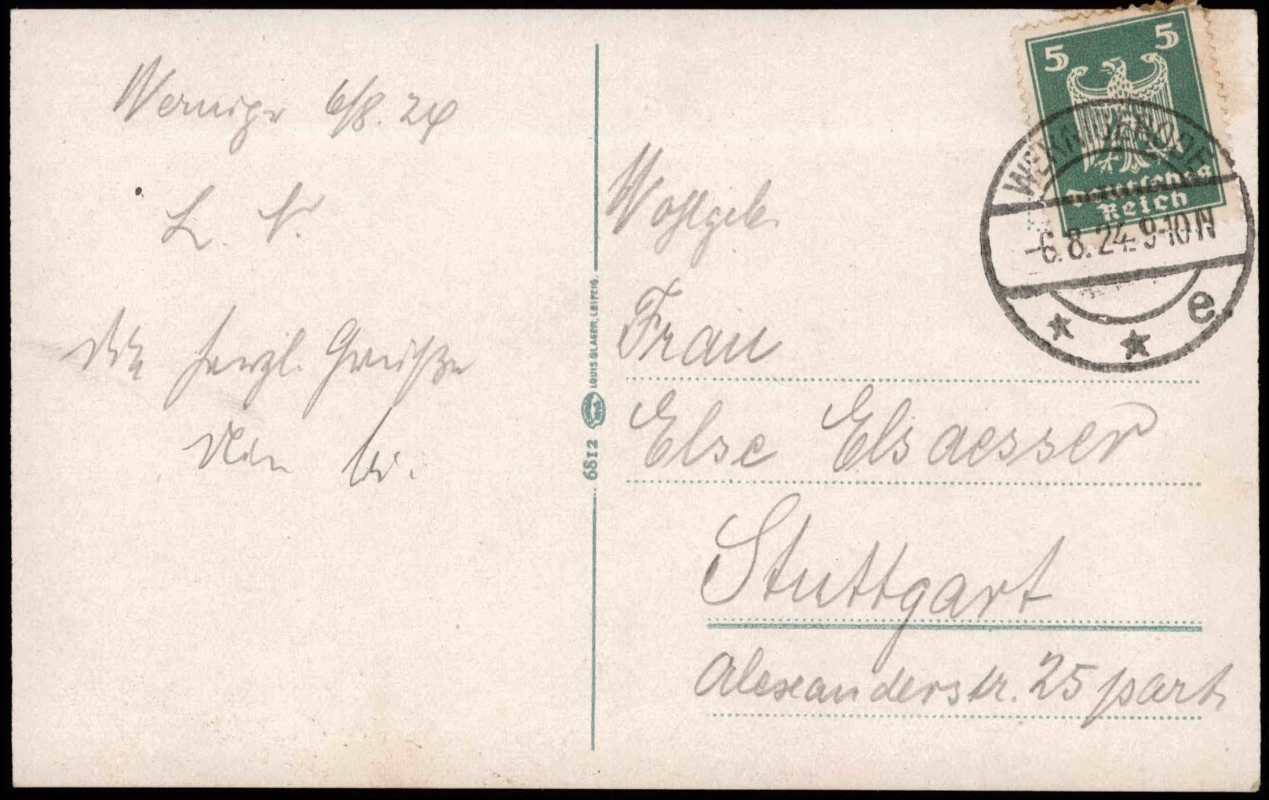 Wernige 6/8.24
L. V.
Dir herzl. Grüße
Dein W.
6812
LOUIS GLASER, LEIPZIG.
5 5
Deutsches
Reich
WERNIGERODE
-6.8.24.9-10N
e
Wohlgeb.
Frau
Else Elsaesser
Stuttgart
Alexanderstr. 25 part.